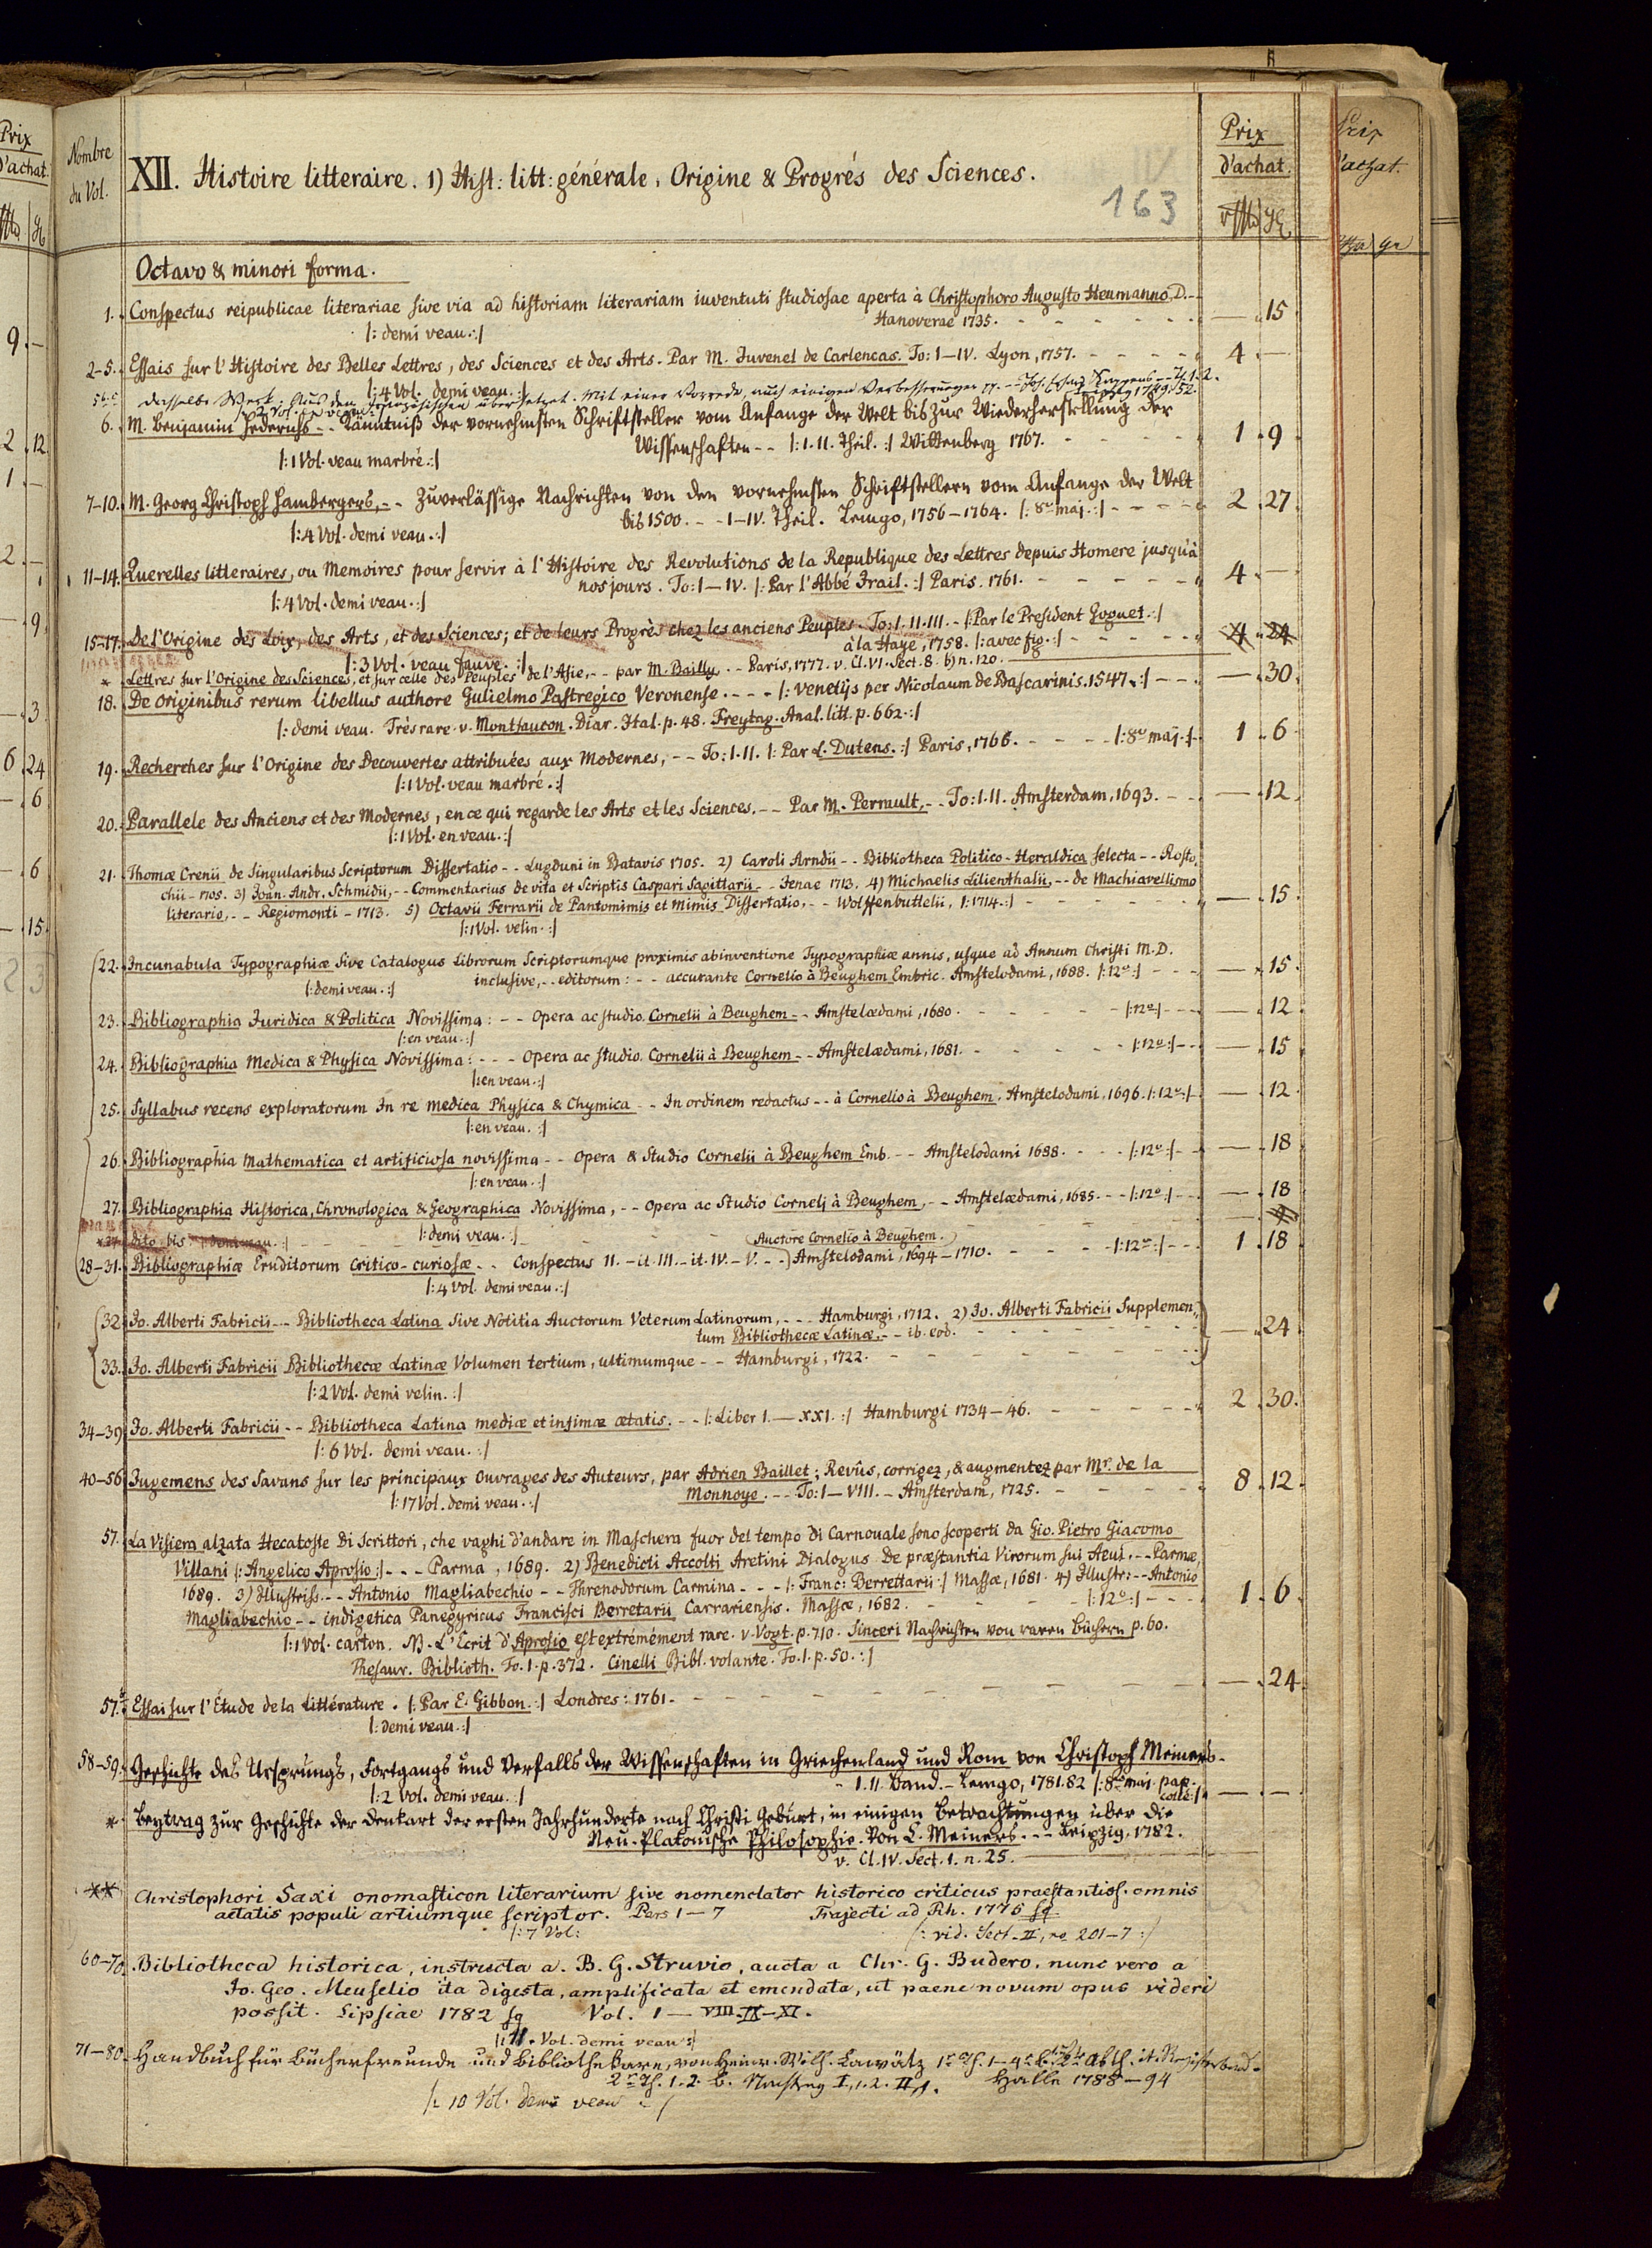 Prix
d'achat.
Nombre
du Vol.
XII. Histoire litteraire. 1) Hist: litt: générale, Origine & Progrés des Sciences.
163
Prix
d'achat.
Octavo & minori forma.
1. Conspectus reipublicae literariae sive via ad historiam literariam iuventuti studiosae aperta à Christophoro Augusto Heumanno, D. --
Hanoverae 1735. — 15
|: demi veau. :|
2-5. Essais sur l'Histoire des Belles Lettres, des Sciences et des Arts. Par M. Juvenel de Carlencas. To: I-IV. Lyon, 1757. 4 —
|: 4 Vol. demi veau. :|
dasselbe Werk, Aus dem Französischen übersetzt. Mit einer Vorrede, auch einigen Verbesserungen -- Joh. Erhard Kappens -- Th. 1. 2.
Leipzig 1749. 52.
6. M. Benjamin Hederichs -- Känntniß der vornehmsten Schriftsteller vom Anfange der Welt bis zur Wiederherstellung der
Wissenschaften -- |: I. II. Theil. :| Wittenberg 1767. 1. 9
|: 1 Vol. veau marbré. :|
7-10. M. Georg Christoph Hambergers, -- Zuverlässige Nachrichten von den vornehmsten Schriftstellern vom Anfange der Welt
bis 1500. -- I-IV. Theil. Lemgo, 1756-1764. |: 8vo maj. :| 2. 27
|: 4 Vol. demi veau. :|
11-14. Querelles litteraires, ou Memoires pour servir à l'Histoire des Revolutions de la Republique des Lettres depuis Homere jusqu'à
nos jours. To: I-IV. |: Par l'Abbé Irail. :| Paris. 1761. 4. —
|: 4 Vol. demi veau. :|
15-17. De l'Origine des Loix, des Arts, et des Sciences; et de leurs Progrès chez les anciens Peuples. To: I. II. III. - |: Par le President Goguet. :|
à la Haye, 1758. |: avec fig. :| 4. 24
|: 3 Vol. veau fauve. :|
* Lettres sur l'Origine des Sciences, et sur celle des Peuples de l'Asie, -- par M. Bailly -- Paris, 1777. v. Cl. VI. Sect. 8. b) n. 120.
18. De Originibus rerum libellus authore Gulielmo Pastregico Veronense. ---- |: Venetijs per Nicolaum de Bascarinis. 1547. :| — 30
|: demi veau. Très rare. v. Montfaucon. Diar. Ital. p. 48. Freytag. Anal. litt. p. 662. :|
19. Recherches sur l'Origine des Decouvertes attribuées aux Modernes, -- To: I. II. |: Par L. Dutens. :| Paris, 1766. |: 8vo maj. :| 1. 6
|: 1 Vol. veau marbré. :|
20. Parallele des Anciens et des Modernes, en ce qui regarde les Arts et les Sciences. -- Par M. Perrault, -- To: I. II. Amsterdam, 1693. — 12
|: 1 Vol. en veau. :|
21. Thomæ Crenii de Singularibus Scriptorum Dissertatio -- Lugduni in Batavis 1705. 2) Caroli Arndii -- Bibliotheca Politico-Heraldica selecta -- Rosto,
chii - 1705. 3) Joan. Andr. Schmidii, -- Commentarius de vita et Scriptis Caspari Sagittarii -- Jenae 1713. 4) Michaelis Lilienthalii, -- de Machiavellismo
literario, -- Regiomonti - 1713. 5) Octavii Ferrarii de Pantomimis et Mimis Dissertatio, -- Wolffenbuttelii, |: 1714. :| — 15
|: 1 Vol. velin. :|
22. Incunabula Typographiæ sive Catalogus Librorum Scriptorumque proximis ab inventione Typographiæ annis, usque ad Annum Christi M.D.
inclusive, -- editorum: -- accurante Cornelio à Beughem Embric. Amstelodami, 1688. |: 12o :| — 15
|: demi veau. :|
23. Bibliographia Juridica & Politica Novissima: -- Opera ac studio Cornelii à Beughem -- Amstelædami, 1680. |: 12o :| — 12
|: en veau. :|
24. Bibliographia Medica & Physica Novissima: --- Opera ac studio Cornelii à Beughem -- Amstelædami, 1681. |: 12o :| — 15
|: en veau. :|
25. Syllabus recens exploratorum In re medica Physica & Chymica -- In ordinem redactus -- à Cornelio à Beughem. Amstelodami, 1696. |: 12o :| — 12
|: en veau. :|
26. Bibliographia Mathematica et artificiosa novissima -- Opera & Studio Cornelii à Beughem Emb. -- Amstelodami 1688. |: 12o :| — 18
|: en veau. :|
27. Bibliographia Historica, Chronologica & Geographica Novissima, -- Opera ac Studio Cornelj à Beughem, -- Amstelædami, 1685. |: 12o :| — 18
|: demi veau. :|
dito bis |: demi veau. :|
(Auctore Cornelio à Beughem.)
28-31. Bibliographiæ Eruditorum critico-curiosæ -- Conspectus II. - it. III. - it. IV. - V. -- Amstelodami, 1694-1710. |: 12o :| 1. 18
|: 4 Vol. demi veau. :|
32. Jo. Alberti Fabricii -- Bibliotheca Latina sive Notitia Auctorum Veterum Latinorum, --- Hamburgi, 1712. 2) Jo. Alberti Fabricii Supplemen,
tum Bibliothecæ Latinæ. -- ib. eod. — 24
33. Jo. Alberti Fabricii Bibliothecæ Latinæ Volumen tertium, ultimumque -- Hamburgi, 1722.
|: 2 Vol. demi velin. :|
34-39. Jo. Alberti Fabricii -- Bibliotheca Latina mediæ et infimæ ætatis. -- |: Liber I. - XXI. :| Hamburgi 1734-46. 2. 30
|: 6 Vol. demi veau. :|
40-56. Jugemens des Savans sur les principaux Ouvrages des Auteurs, par Adrien Baillet; Revûs, corrigez, & augmentez par Mr. de la
Monnoye. -- To: I-VIII. - Amsterdam, 1725. 8. 12
|: 17 Vol. demi veau. :|
57. La Visiera alzata Hecatoste Di Scrittori, che vaghi d'andare in Maschera fuor del tempo di Carnouale sono scoperti da Gio. Pietro Giacomo
Villani |: Angelico Aprosio :| --- Parma, 1689. 2) Benedicti Accolti Aretini Dialogus De præstantia Virorum sui Aevi. -- Parmæ,
1689. 3) Illustriss. -- Antonio Magliabechio -- Threnodorum Carmina --- |: Franc: Berrettarii :| Massæ, 1681. 4) Illustr: -- Antonio
Magliabechio -- indigetica Panegyricus Francisci Berretarii Carrariensis. Massæ, 1682. |: 12o :| 1. 6
|: 1 Vol. carton. NB. L'Ecrit d'Aprosio est extrémément rare. v. Vogt. p. 710. Sinceri Nachrichten von raren Büchern p. 60.
Thesaur. Biblioth. To. 1. p. 372. Cinelli Bibl. volante. To. 1. p. 50. :|
57. Essai sur l'Étude de la Littérature. |: Par E. Gibbon. :| Londres: 1761. — 24
|: demi veau. :|
58-59. Geschichte des Ursprungs, Fortgangs und Verfalls der Wissenschaften in Griechenland und Rom von Christoph Meiners -
I. II. Band. - Lemgo, 1781. 82 |: 8vo maj. pap. collé :| — —
|: 2 Vol. demi veau. :|
* Beytrag zur Geschichte der Denkart der ersten Jahrhunderte nach Christi Geburt, in einigen Betrachtungen über die
Neu-Platonische Philosophie. Von C. Meiners. --- Leipzig, 1782.
v. Cl. IV. Sect. 1. n. 25.
** Christophori Saxi onomasticon literarium sive nomenclator historico criticus praestantiss. omnis
aetatis populi artiumque scriptor. Pars 1-7 Trajecti ad Rh. 1775 sq.
|: 7 Vol: |: vid. Sect. II, no 201-7 :|
60-70. Bibliotheca historica, instructa a B. G. Struvio, aucta a Chr. G. Budero, nunc vero a
Jo. Geo. Meuselio ita digesta, amplificata et emendata, ut paene novum opus videri
possit. Lipsiae 1782 sq Vol. 1 - VIII - IX - XI.
|: 11. Vol. demi veau :|
71-80. Handbuch für Bücherfreunde und Bibliothekare, von Heinr. Wilh. Lawätz 1r Th. 1-4r B. Abth. it. Registerband.
2r Th. 1. 2. B. Nachtrag I, 1. 2. II, 1. Halle 1788-94
|: 10 Vol. demi veau :|